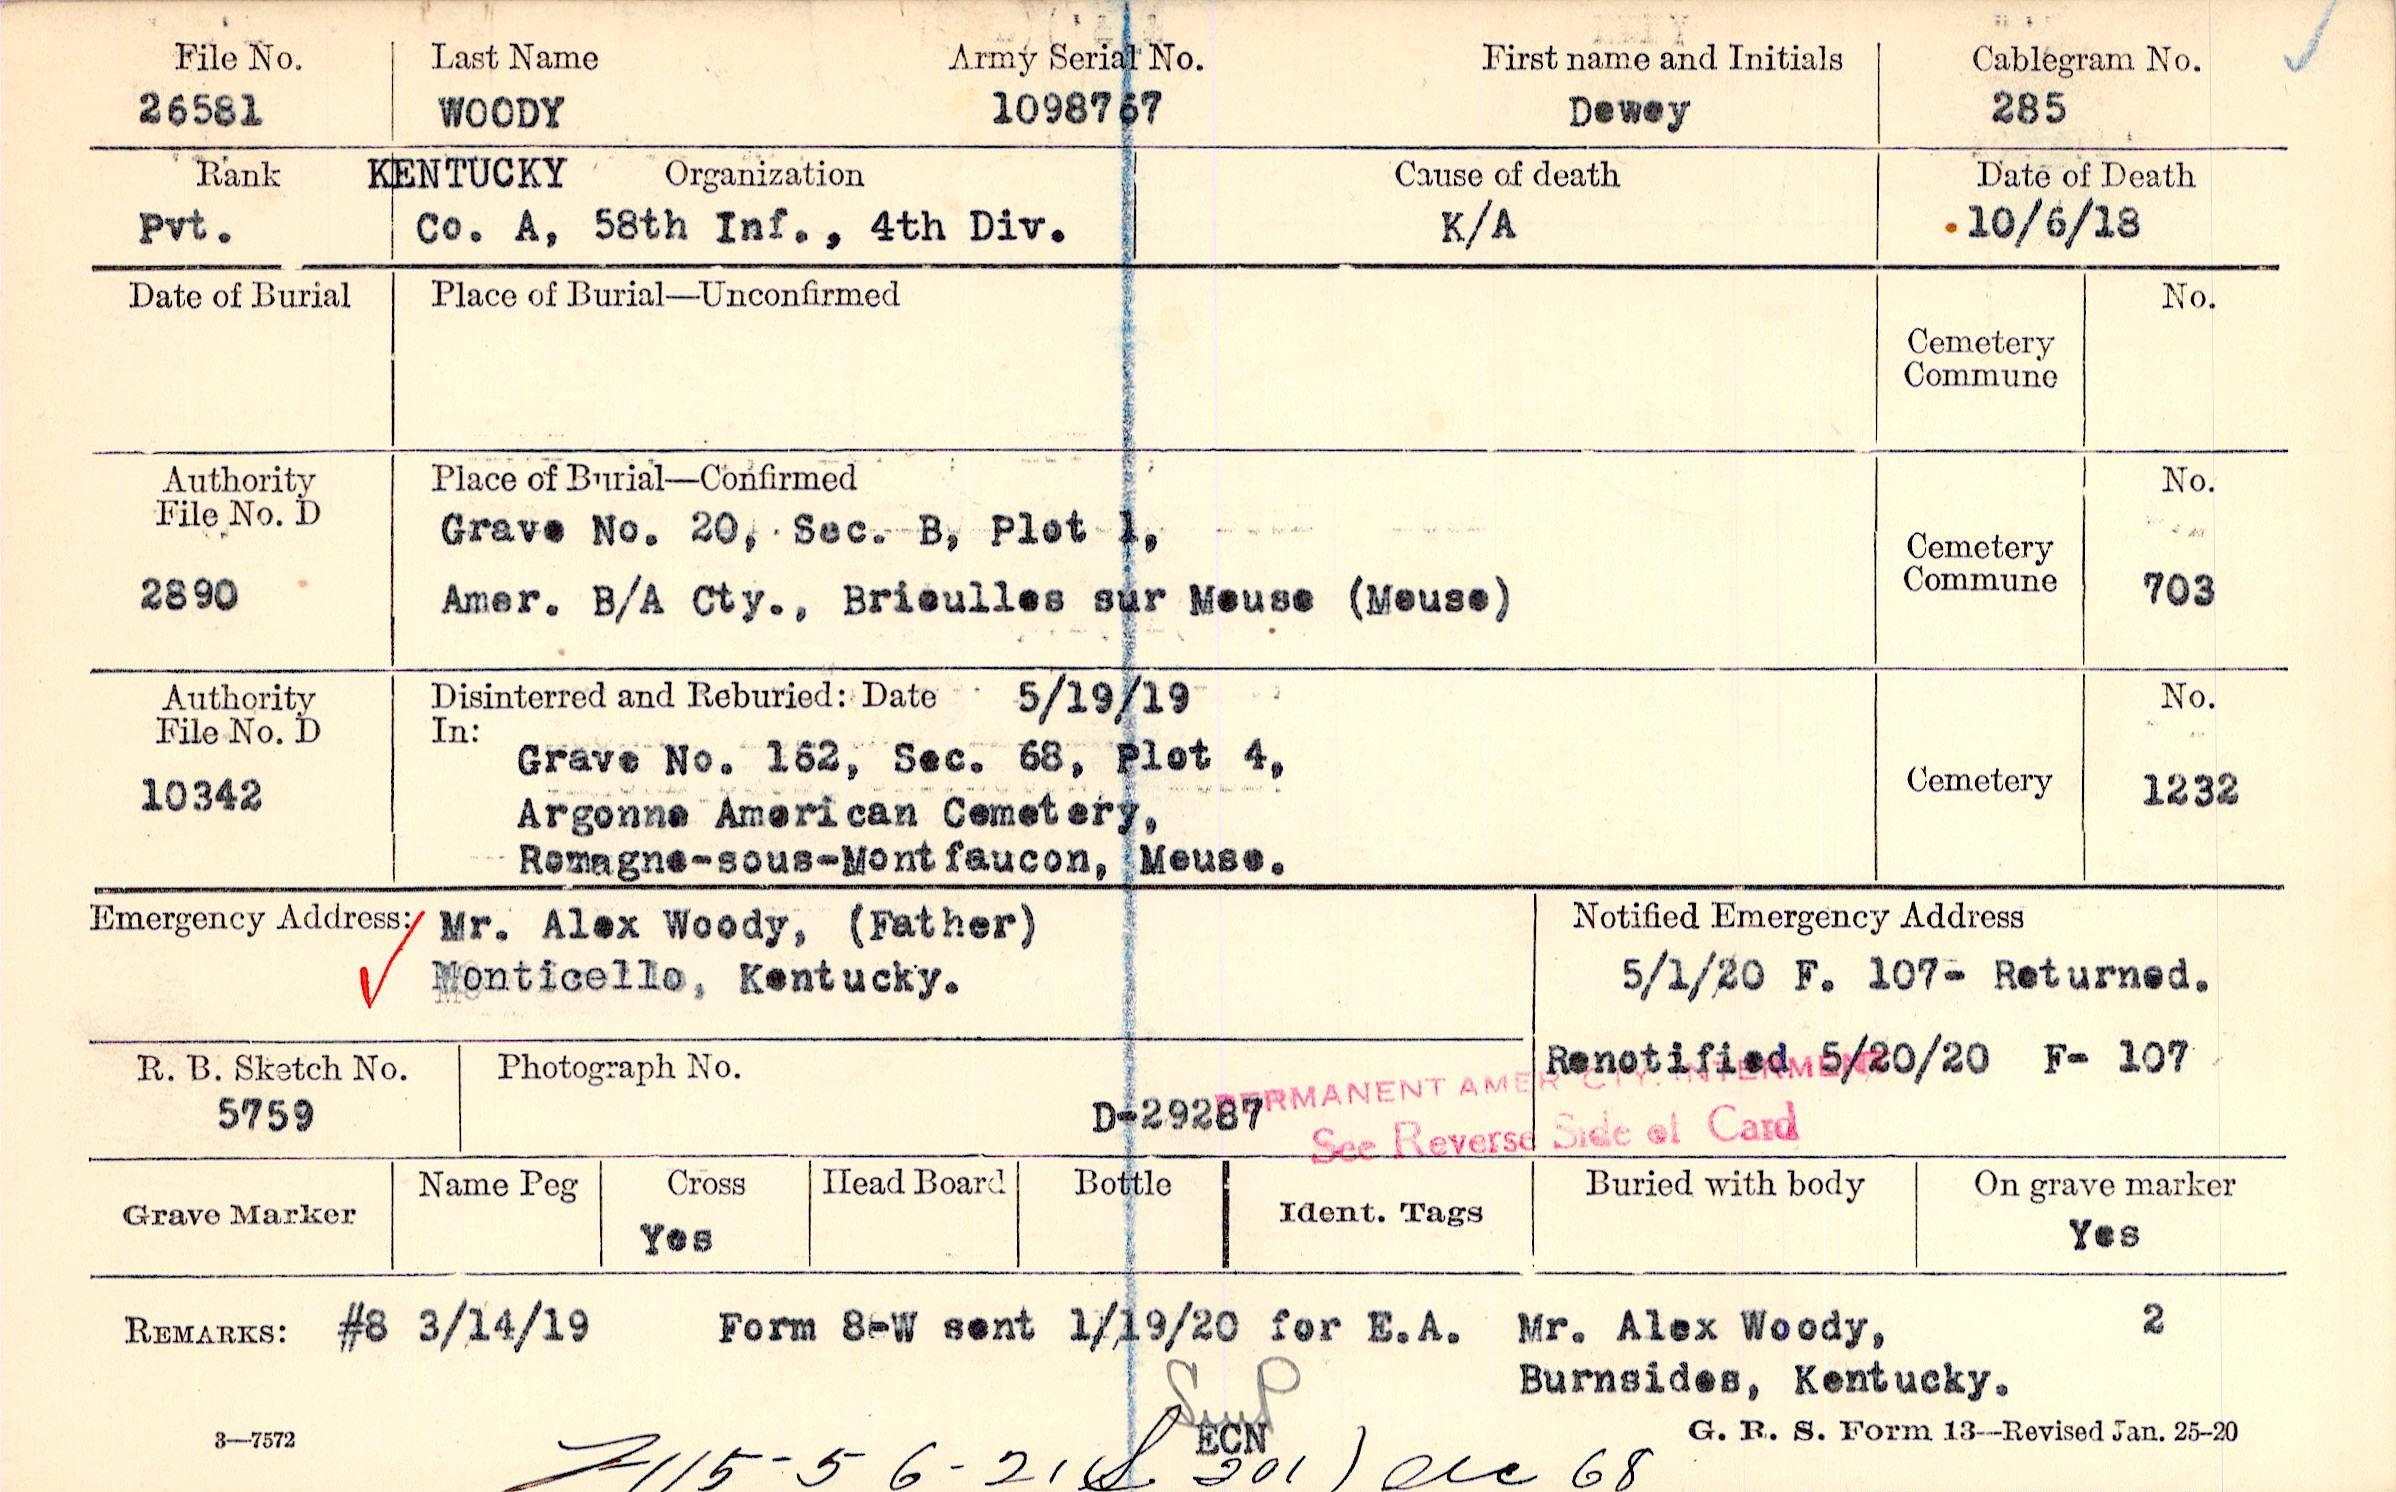 File No. Last Name Army Serial No. First name and Initials Cablegram No.
26581 WOODY 1098767 Dewey 285
Rank KENTUCKY Organization Cause of death Date of Death
Pvt. Co. A, 58th Inf., 4th Div. K/A 10/6/18
Date of Burial Place of Burial—Unconfirmed No.
Cemetery
Commune
Authority Place of Burial—Confirmed No.
File No. D
Grave No. 20, Sec. B, Plot 1,
Cemetery
Commune
2890 Amer. B/A Cty., Brieulles sur Meuse (Meuse) 703
Authority Disinterred and Reburied: Date 5/19/19 No.
File No. D In:
Grave No. 162, Sec. 68, Plot 4,
10342 Cemetery 1232
Argonne American Cemetery,
Romagne-sous-Montfaucon, Meuse.
Emergency Address: Mr. Alex Woody, (Father) Notified Emergency Address
Monticello, Kentucky. 5/1/20 F. 107- Returned.
Renotified 5/20/20 F- 107
R. B. Sketch No. Photograph No.
PERMANENT AMER. CTY. INTERMENT
5759 D-29287
See Reverse Side of Card
Grave Marker Name Peg Cross Head Board Bottle Ident. Tags Buried with body On grave marker
Yes Yes
REMARKS: #8 3/14/19 Form 8-W sent 1/19/20 for E.A. Mr. Alex Woody, 2
Burnsides, Kentucky.
ECN
3—7572 G. R. S. Form 13—Revised Jan. 25-20
115-5 6-21 301) 68